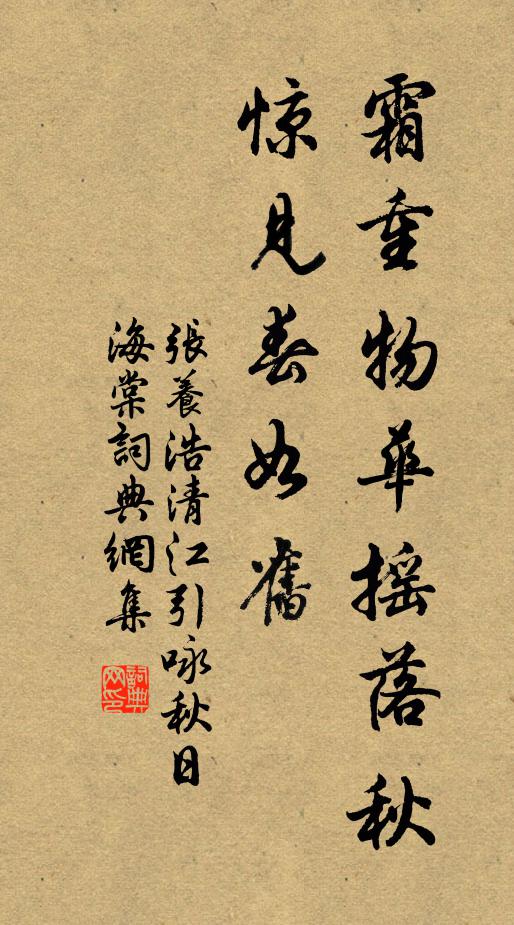 霜重物華摇落秋
惊見春如舊
張養浩清江引咏秋日
海棠詞典網集
詞典网印